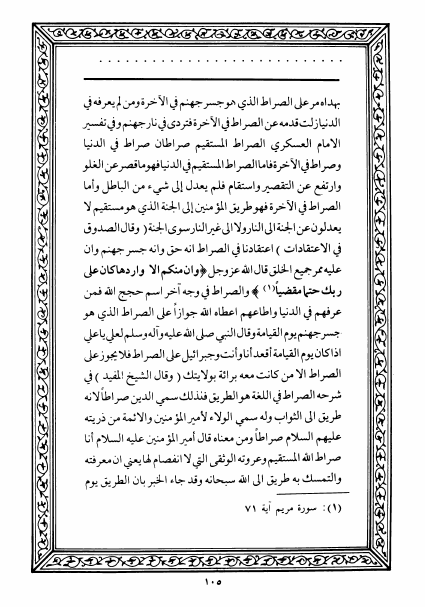 بهداه مر على الصراط الذي هو جسر جهنم في الآخرة ومن لم يعرفه في
الدنيا زلت قدمه عن الصراط في الآخرة فتردى في نار جهنم وفي تفسير
الامام العسكري الصراط المستقيم صراطان صراط في الدنيا
وصراط في الآخرة فاما الصراط المستقيم في الدنيا فهو ما قصر عن الغلو
وارتفع عن التقصير واستقام فلم يعدل إلى شيء من الباطل وأما
الصراط في الآخرة فهو طريق المؤمنين إلى الجنة الذي هو مستقيم لا
يعدلون عن الجنة الى النار ولا الى غير النار سوى الجنة ( وقال الصدوق
في الاعتقادات ) اعتقادنا في الصراط انه حق وانه جسر جهنم وان
عليه ممر جميع الخلق قال الله عز وجل ﴿وان منكم الا واردها كان على
ربك حتما مقضياً (١) ﴾ والصراط في وجه آخر اسم حجج الله فمن
عرفهم في الدنيا واطاعهم اعطاه الله جوازاً على الصراط الذي هو
جسر جهنم يوم القيامة وقال النبي صلى الله عليه وآله وسلم لعلي يا علي
اذا كان يوم القيامة أقعد أنا وأنت وجبرائيل على الصراط فلا يجوز على
الصراط الا من كانت معه برائة بولايتك ( وقال الشيخ المفيد ) في
شرحه الصراط في اللغة هو الطريق فلذلك سمي الدين صراطاً لانه
طريق الى الثواب وله سمي الولاء لأمير المؤمنين والائمة من ذريته
عليهم السلام صراطاً ومن معناه قال أمير المؤمنين عليه السلام أنا
صراط الله المستقيم وعروته الوثقى التي لا انفصام لها يعني ان معرفته
والتمسك به طريق الى الله سبحانه وقد جاء الخبر بان الطريق يوم
(١): سورة مريم آية ٧١
١٠٥